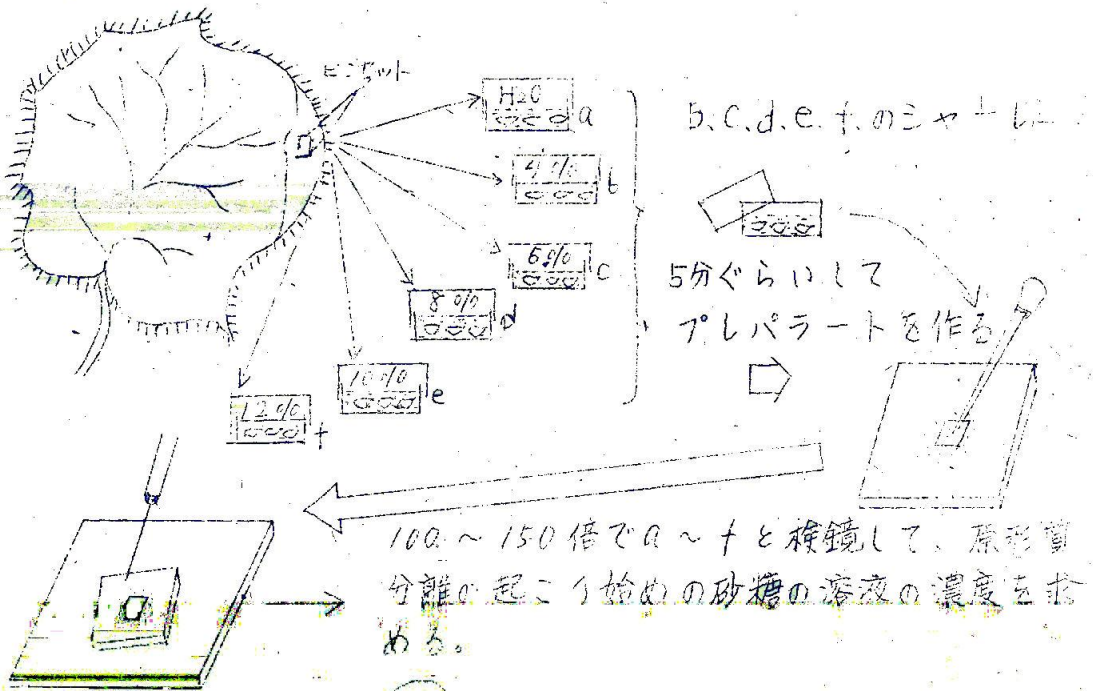 ピンセット
H2O
a
4%
b
6%
c
8%
d
10%
e
12%
f
b.c.d.e.f.のシャーレに
5分ぐらいして
プレパラートを作る
100～150倍でa～fと検鏡して、原形質
分離の起こり始めの砂糖の溶液の濃度を求
める。